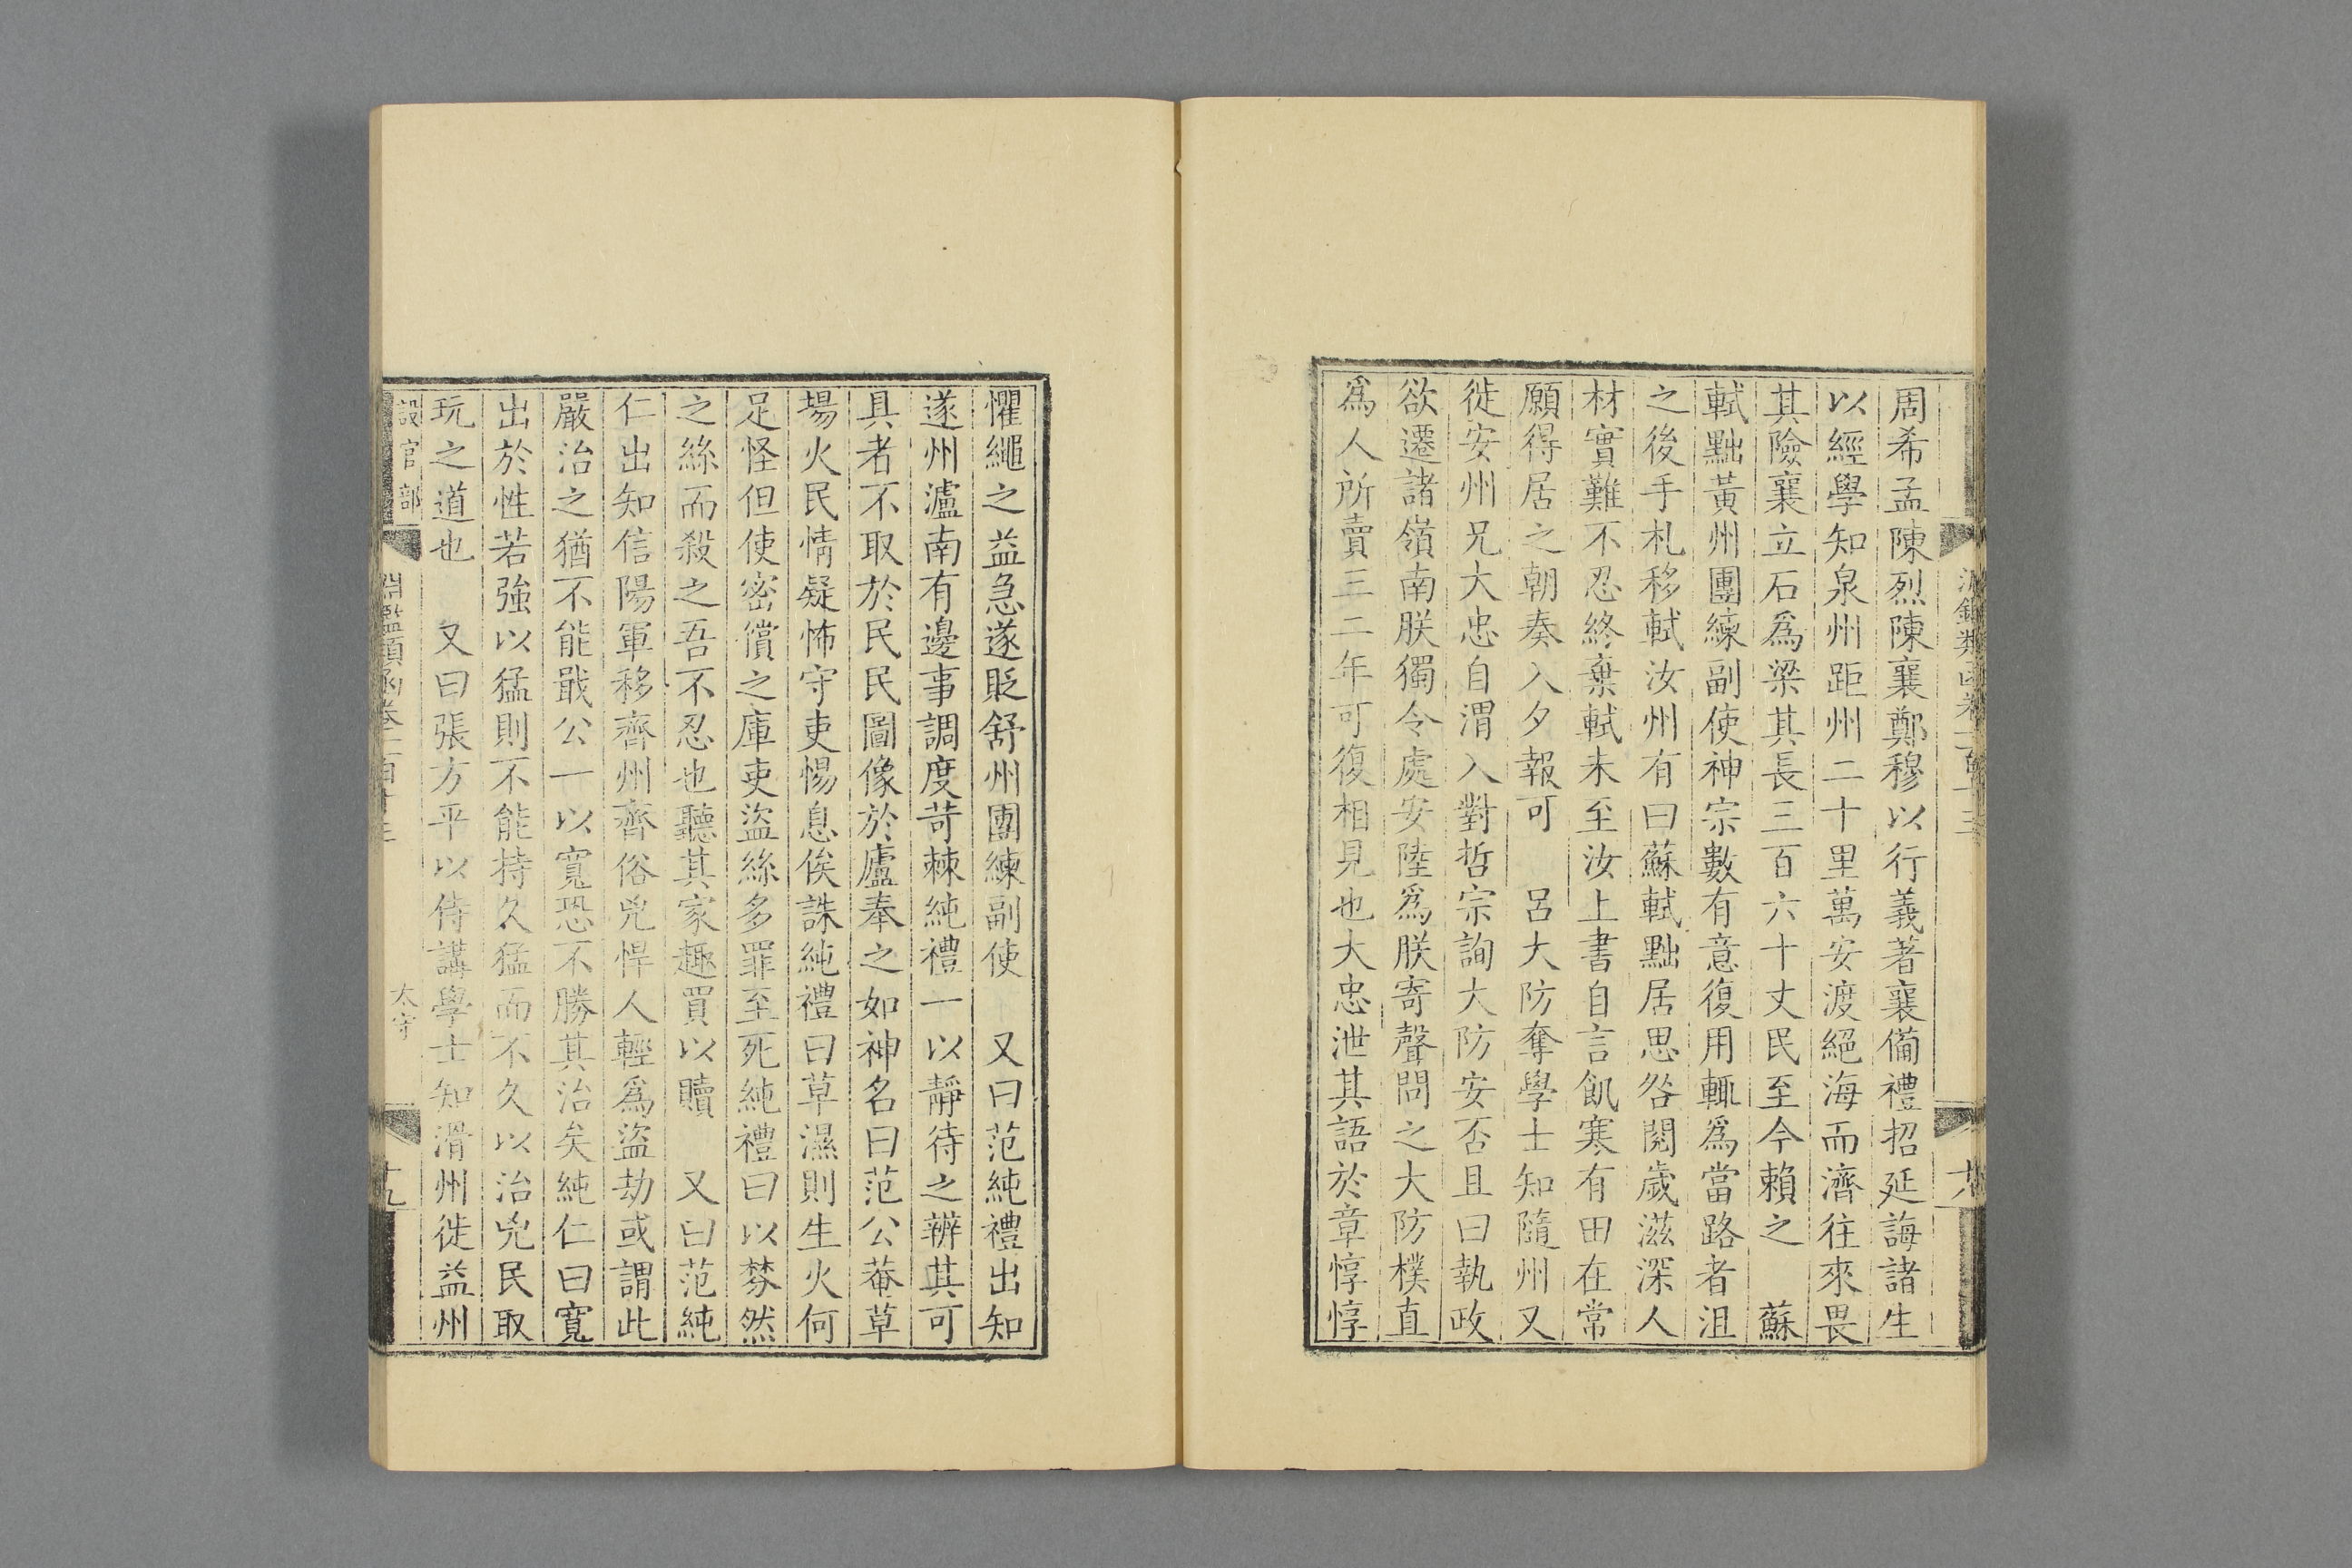 周希孟陳烈陳襄鄭穆以行義著襄備禮招延誨諸生
以經學知泉州距州二十里萬安渡絕海而濟往來畏
其險襄立石爲梁其長三百六十丈民至今賴之　蘇
軾黜黃州團練副使神宗數有意復用輒爲當路者沮
之後手札移軾汝州有曰蘇軾黜居思咎閱歲滋深人
材實難不忍終棄軾未至汝上書自言飢寒有田在常
願得居之朝奏入夕報可　呂大防奪學士知隨州又
徙安州兄大忠自渭入對哲宗詢大防安否且曰執政
欲遷諸嶺南朕獨令處安陸爲朕寄聲問之大防樸直
爲人所賣三二年可復相見也大忠泄其語於章惇惇
懼繩之益急遂貶舒州團練副使　又曰范純禮出知
遂州瀘南有邊事調度苛棘純禮一以靜待之辦其可
具者不取於民民圖像於廬奉之如神名曰范公菴草
場火民情疑怖守吏惕息俟誅純禮曰草濕則生火何
足怪但使密償之庫吏盜絲多罪至死純禮曰以棼然
之絲而殺之吾不忍也聽其家趣買以贖　又曰范純
仁出知信陽軍移齊州齊俗兇悍人輕爲盜劫或謂此
嚴治之猶不能戢公一以寬恐不勝其治矣純仁曰寬
出於性若強以猛則不能持久猛而不久以治兇民取
玩之道也　又曰張方平以侍講學士知滑州徙益州
設官部　淵鑑類函卷一百十三　太守　十九